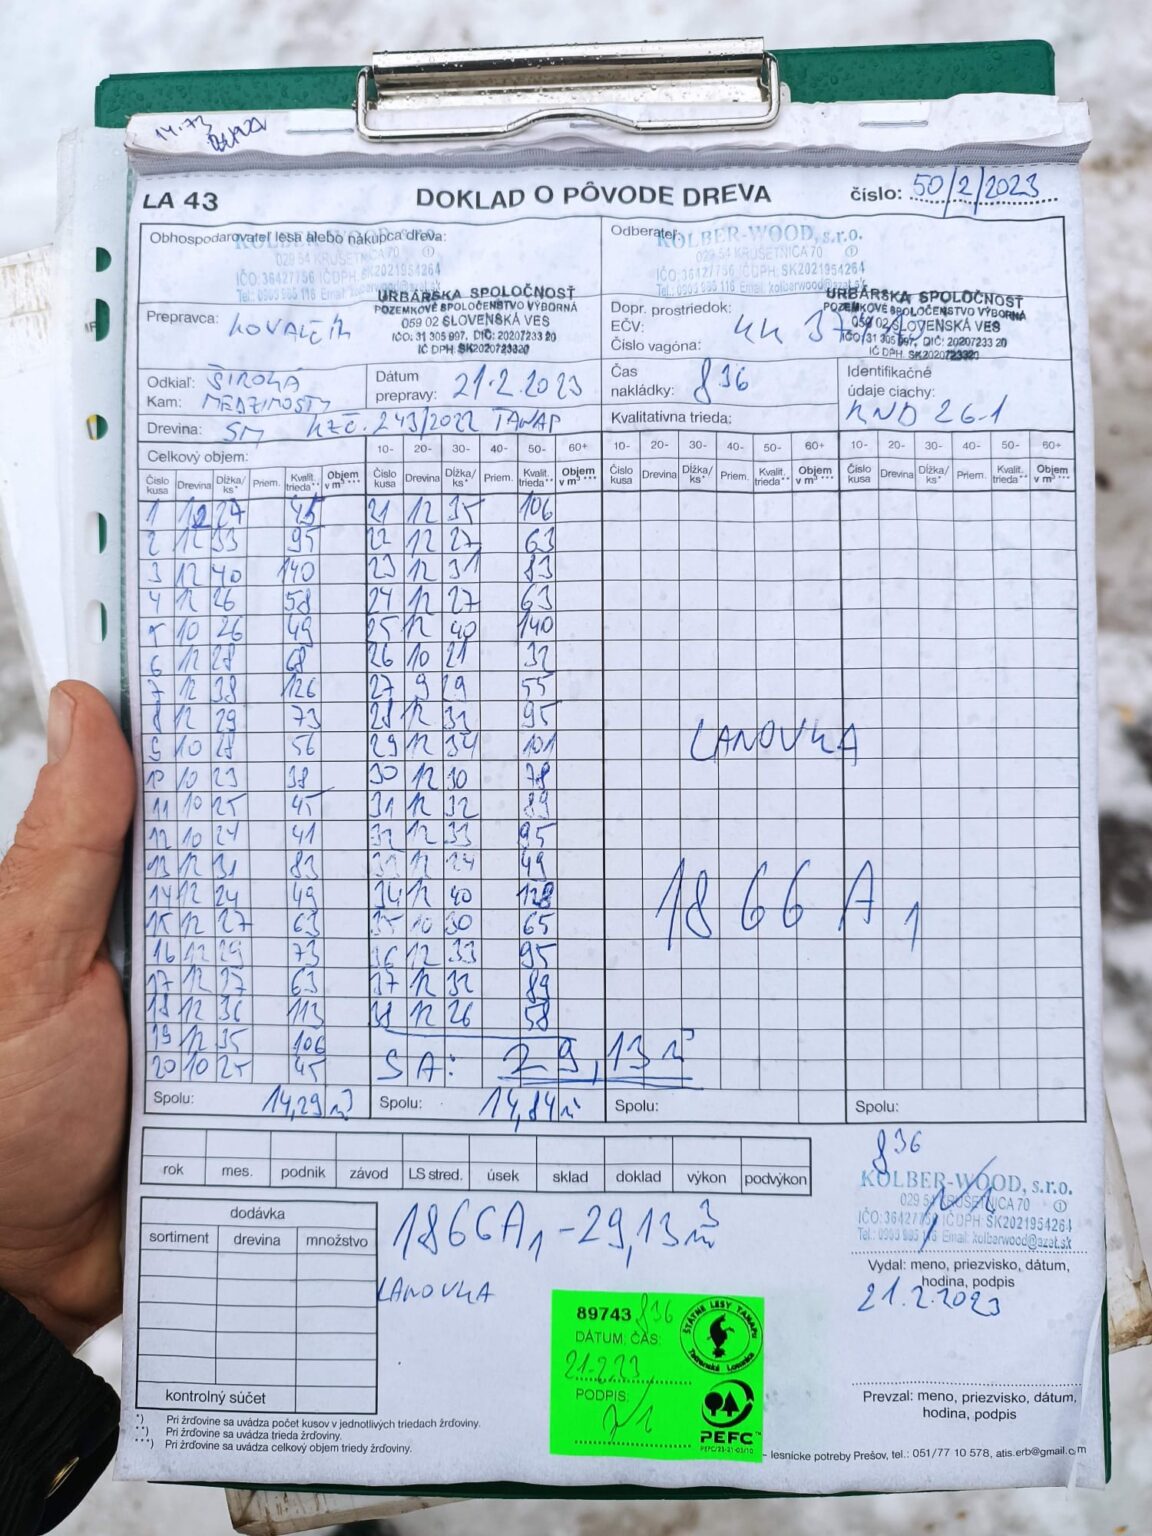 14.73
LA 43
DOKLAD O PÔVODE DREVA
číslo: 50/2/2023
Obhospodarovateľ lesa alebo nákupca dreva:
KOLBER-WOOD, s.r.o.
029 54 KRUŠETNICA 70
IČO: 36427756 IČDPH: SK2021954264
URBÁRSKA SPOLOČNOSŤ
POZEMKOVÉ SPOLOČENSTVO VÝBORNÁ
059 02 SLOVENSKÁ VES
IČO: 31 305 997, DIČ: 20207233 20
IČ DPH. SK2020723320
Prepravca: KOVALČÍK
Odberateľ:
KOLBER-WOOD, s.r.o.
029 54 KRUŠETNICA 70
IČO: 36427756 IČDPH: SK2021954264
URBÁRSKA SPOLOČNOSŤ
POZEMKOVÉ SPOLOČENSTVO VÝBORNÁ
059 02 SLOVENSKÁ VES
IČO: 31 305 997, DIČ: 20207233 20
IČ DPH. SK2020723320
Dopr. prostriedok:
EČV: KK
Číslo vagóna:
Odkiaľ: ŠIROKÁ
Kam: MEDZIMOSTY
Dátum
prepravy: 21.2.2023
Čas
nakládky: 836
Identifikačné
údaje ciachy:
KND 26-1
Drevina: SM KZČ. 243/2022 TANAP
Kvalitatívna trieda:
Celkový objem:
10- 20- 30- 40- 50- 60+
10- 20- 30- 40- 50- 60+
10- 20- 30- 40- 50- 60+
Číslo kusa Drevina Dĺžka/ ks* Priem. Kvalit. trieda** Objem v m³ ***
Číslo kusa Drevina Dĺžka/ ks* Priem. Kvalit. trieda** Objem v m³ ***
Číslo kusa Drevina Dĺžka/ ks* Priem. Kvalit. trieda** Objem v m³ ***
Číslo kusa Drevina Dĺžka/ ks* Priem. Kvalit. trieda** Objem v m³ ***
1 12 27 21 12 35 106
2 12 33 95 22 12 27 63
3 12 40 140 23 12 31 83
4 12 26 58 24 12 27 63
5 10 26 49 25 12 40 140
6 12 28 68 26 10 21 32
7 12 38 126 27 9 29 55
8 12 29 73 28 12 33 95
9 10 28 56 29 12 34 101
10 10 23 38 30 12 30 78
11 10 25 45 31 12 32 89
12 10 24 41 32 12 33 95
13 12 31 83 33 12 24 49
14 12 24 49 34 12 40
15 12 27 63 35 10 30 65
16 12 29 73 36 12 33 95
17 12 27 63 37 12 32 89
18 12 36 113 38 12 26 58
19 12 35 106
20 10 25 45
SA: 29,13 m³
LANOVKA
1866 A1
Spolu: 14,29 m³
Spolu: 14,84 m³
Spolu:
Spolu:
rok mes. podnik závod LS stred. úsek sklad doklad výkon podvýkon
dodávka
sortiment drevina množstvo
kontrolný súčet
1866A1 - 29,13 m³
LANOVKA
836
KOLBER-WOOD, s.r.o.
029 54 KRUŠETNICA 70
IČO: 36427756 IČDPH: SK2021954264
Email: kolberwood@azet.sk
Vydal: meno, priezvisko, dátum,
hodina, podpis
21.2.2023
Prevzal: meno, priezvisko, dátum,
hodina, podpis
89743 836
DÁTUM, ČAS:
21.2.23
PODPIS:
ŠTÁTNE LESY TANAPu
Tatranská Lomnica
PEFC™
PEFC/23-21-03/10
*) Pri žrďovine sa uvádza počet kusov v jednotlivých triedach žrďoviny.
**) Pri žrďovine sa uvádza trieda žrďoviny.
***) Pri žrďovine sa uvádza celkový objem triedy žrďoviny.
- lesnícke potreby Prešov, tel.: 051/77 10 578, atis.erb@gmail.com